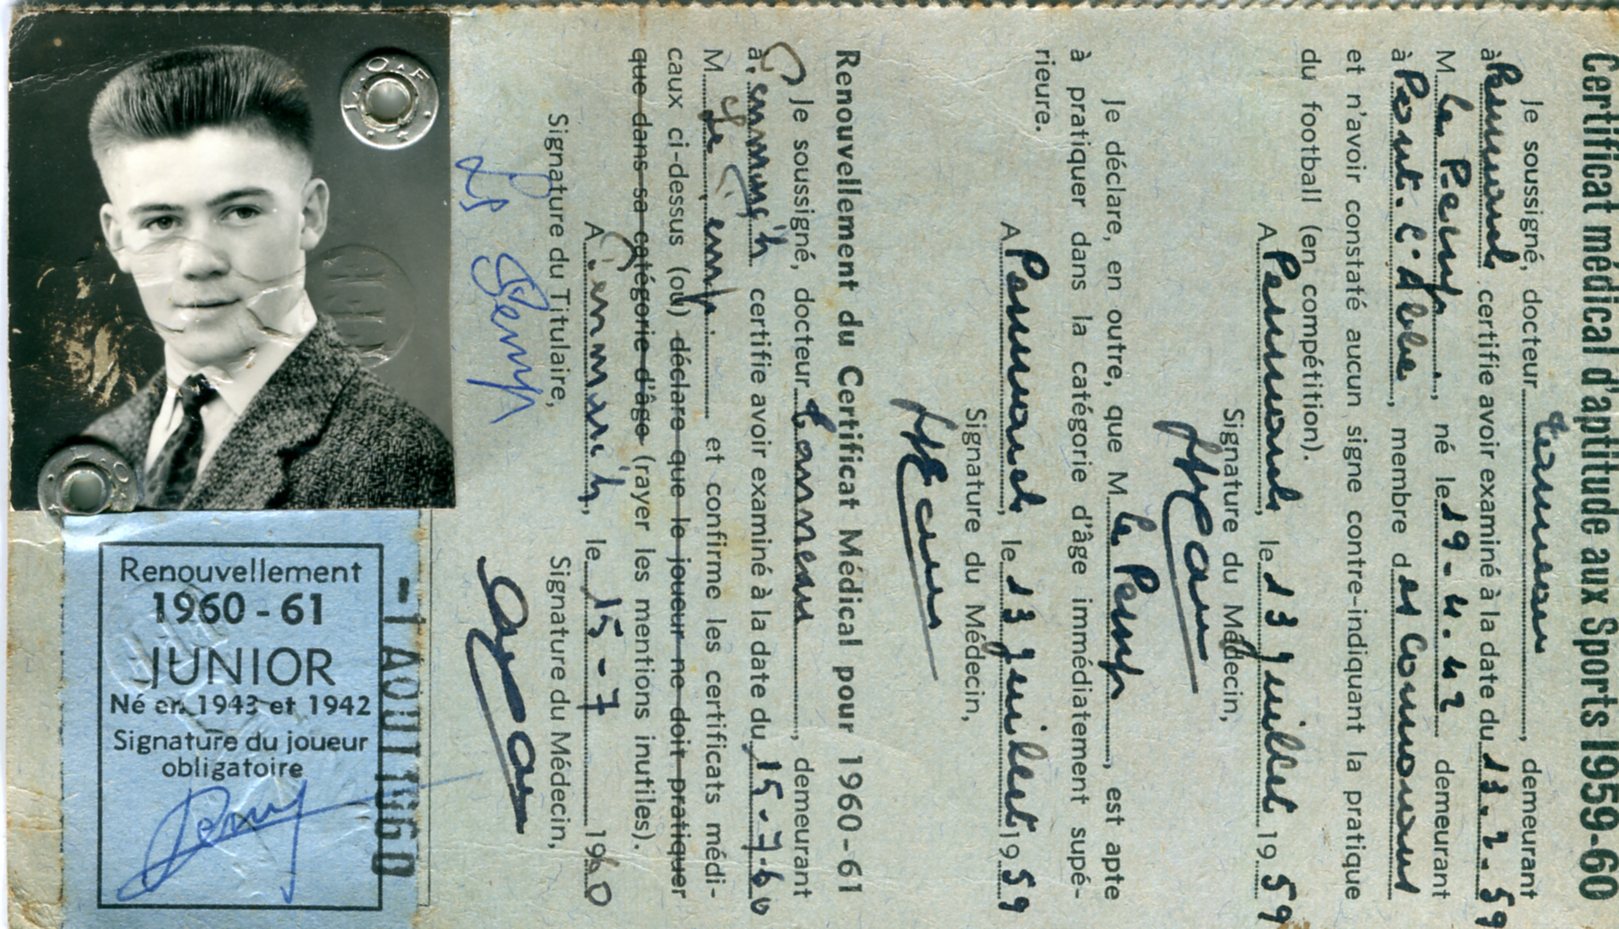 Certificat médical d'aptitude aux Sports 1959-60
Je soussigné, docteur Tanneau, demeurant
à Penmarch certifie avoir examiné à la date du 13.7.59
M. Le Pemp, né le 19.4.42 demeurant
à Pont-l'Abbé, membre des Cormorans
et n'avoir constaté aucun signe contre-indiquant la pratique
du football (en compétition).
A Penmarch, le 13 Juillet 1959
Signature du Médecin,
Je déclare, en outre, que M. Le Pemp, est apte
à pratiquer dans la catégorie d'âge immédiatement supé-
rieure.
A Penmarch, le 13 Juillet 1959
Signature du Médecin,
Renouvellement du Certificat Médical pour 1960-61
Je soussigné, docteur Tanneau, demeurant
à Penmarc'h certifie avoir examiné à la date du 15-7-60
M. Le Pemp et confirme les certificats médi-
caux ci-dessus (ou) déclare que le joueur ne doit pratiquer
que dans sa catégorie d'âge (rayer les mentions inutiles).
A Penmarc'h, le 15-7 1960
Signature du Titulaire, Signature du Médecin,
Le Pemp
Renouvellement
1960-61
JUNIOR
Né en 1943 et 1942
Signature du joueur
obligatoire
Pemp
-1 AOUT 1960